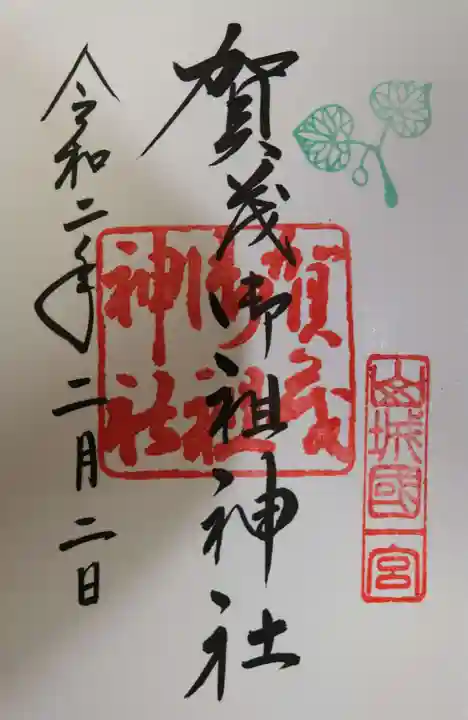 山城國一宮
賀茂御祖神社
賀茂御祖神社
令和二年二月二日